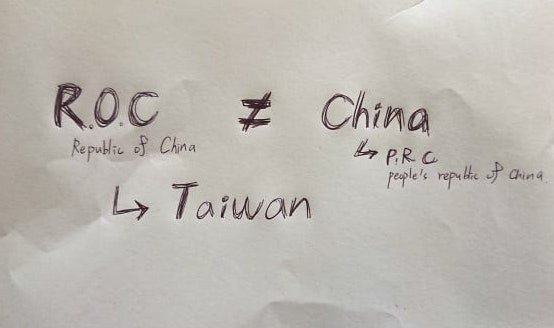 R.O.C ≠ China
Republic of China
↳ P.R.C.
people's republic of China
↳ Taiwan